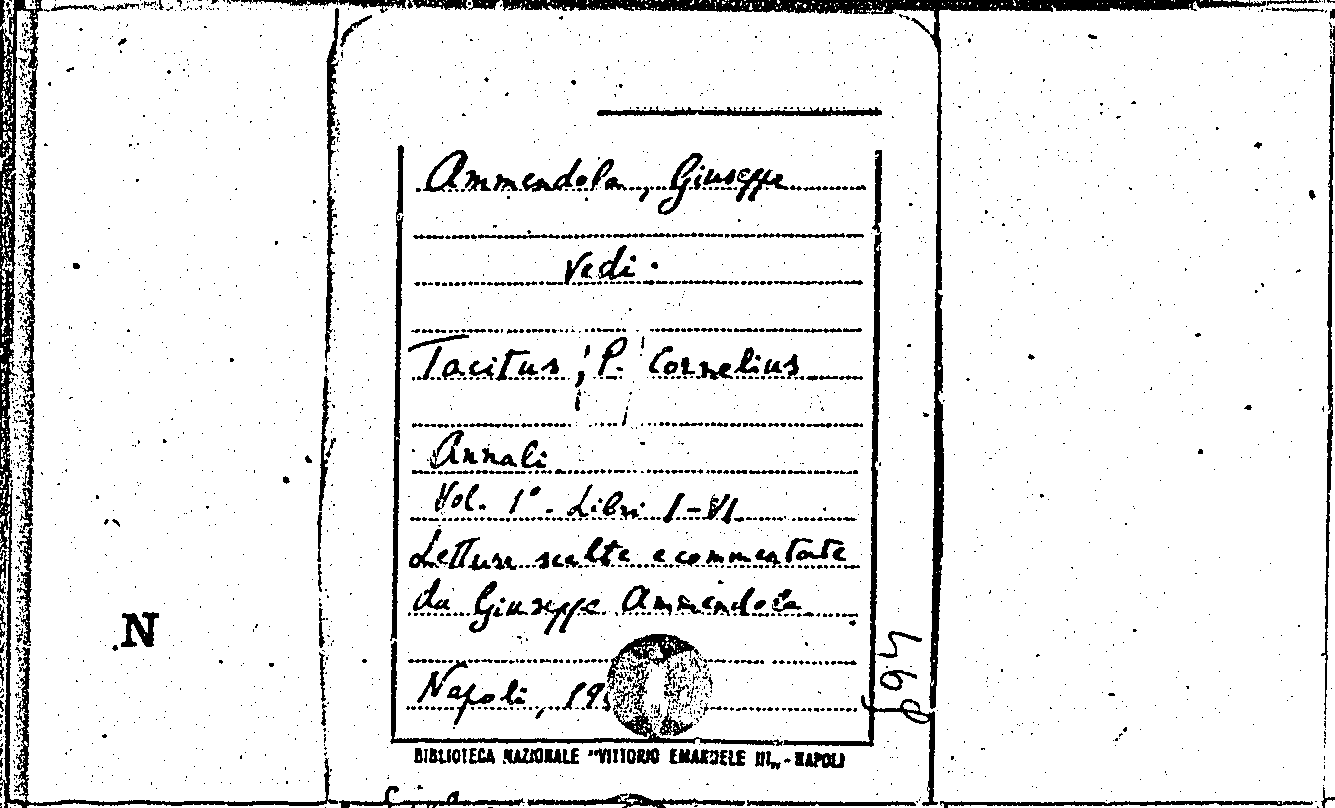 Ammendola, Giuseppe
Vedi.
Tacitus, P. Cornelius
Annali
Vol. 1° - Libri I-VI
Letture scelte e commentate
da Giuseppe Ammendola
Napoli,
N
BIBLIOTECA NAZIONALE "VITTORIO EMANUELE III„ - NAPOLI